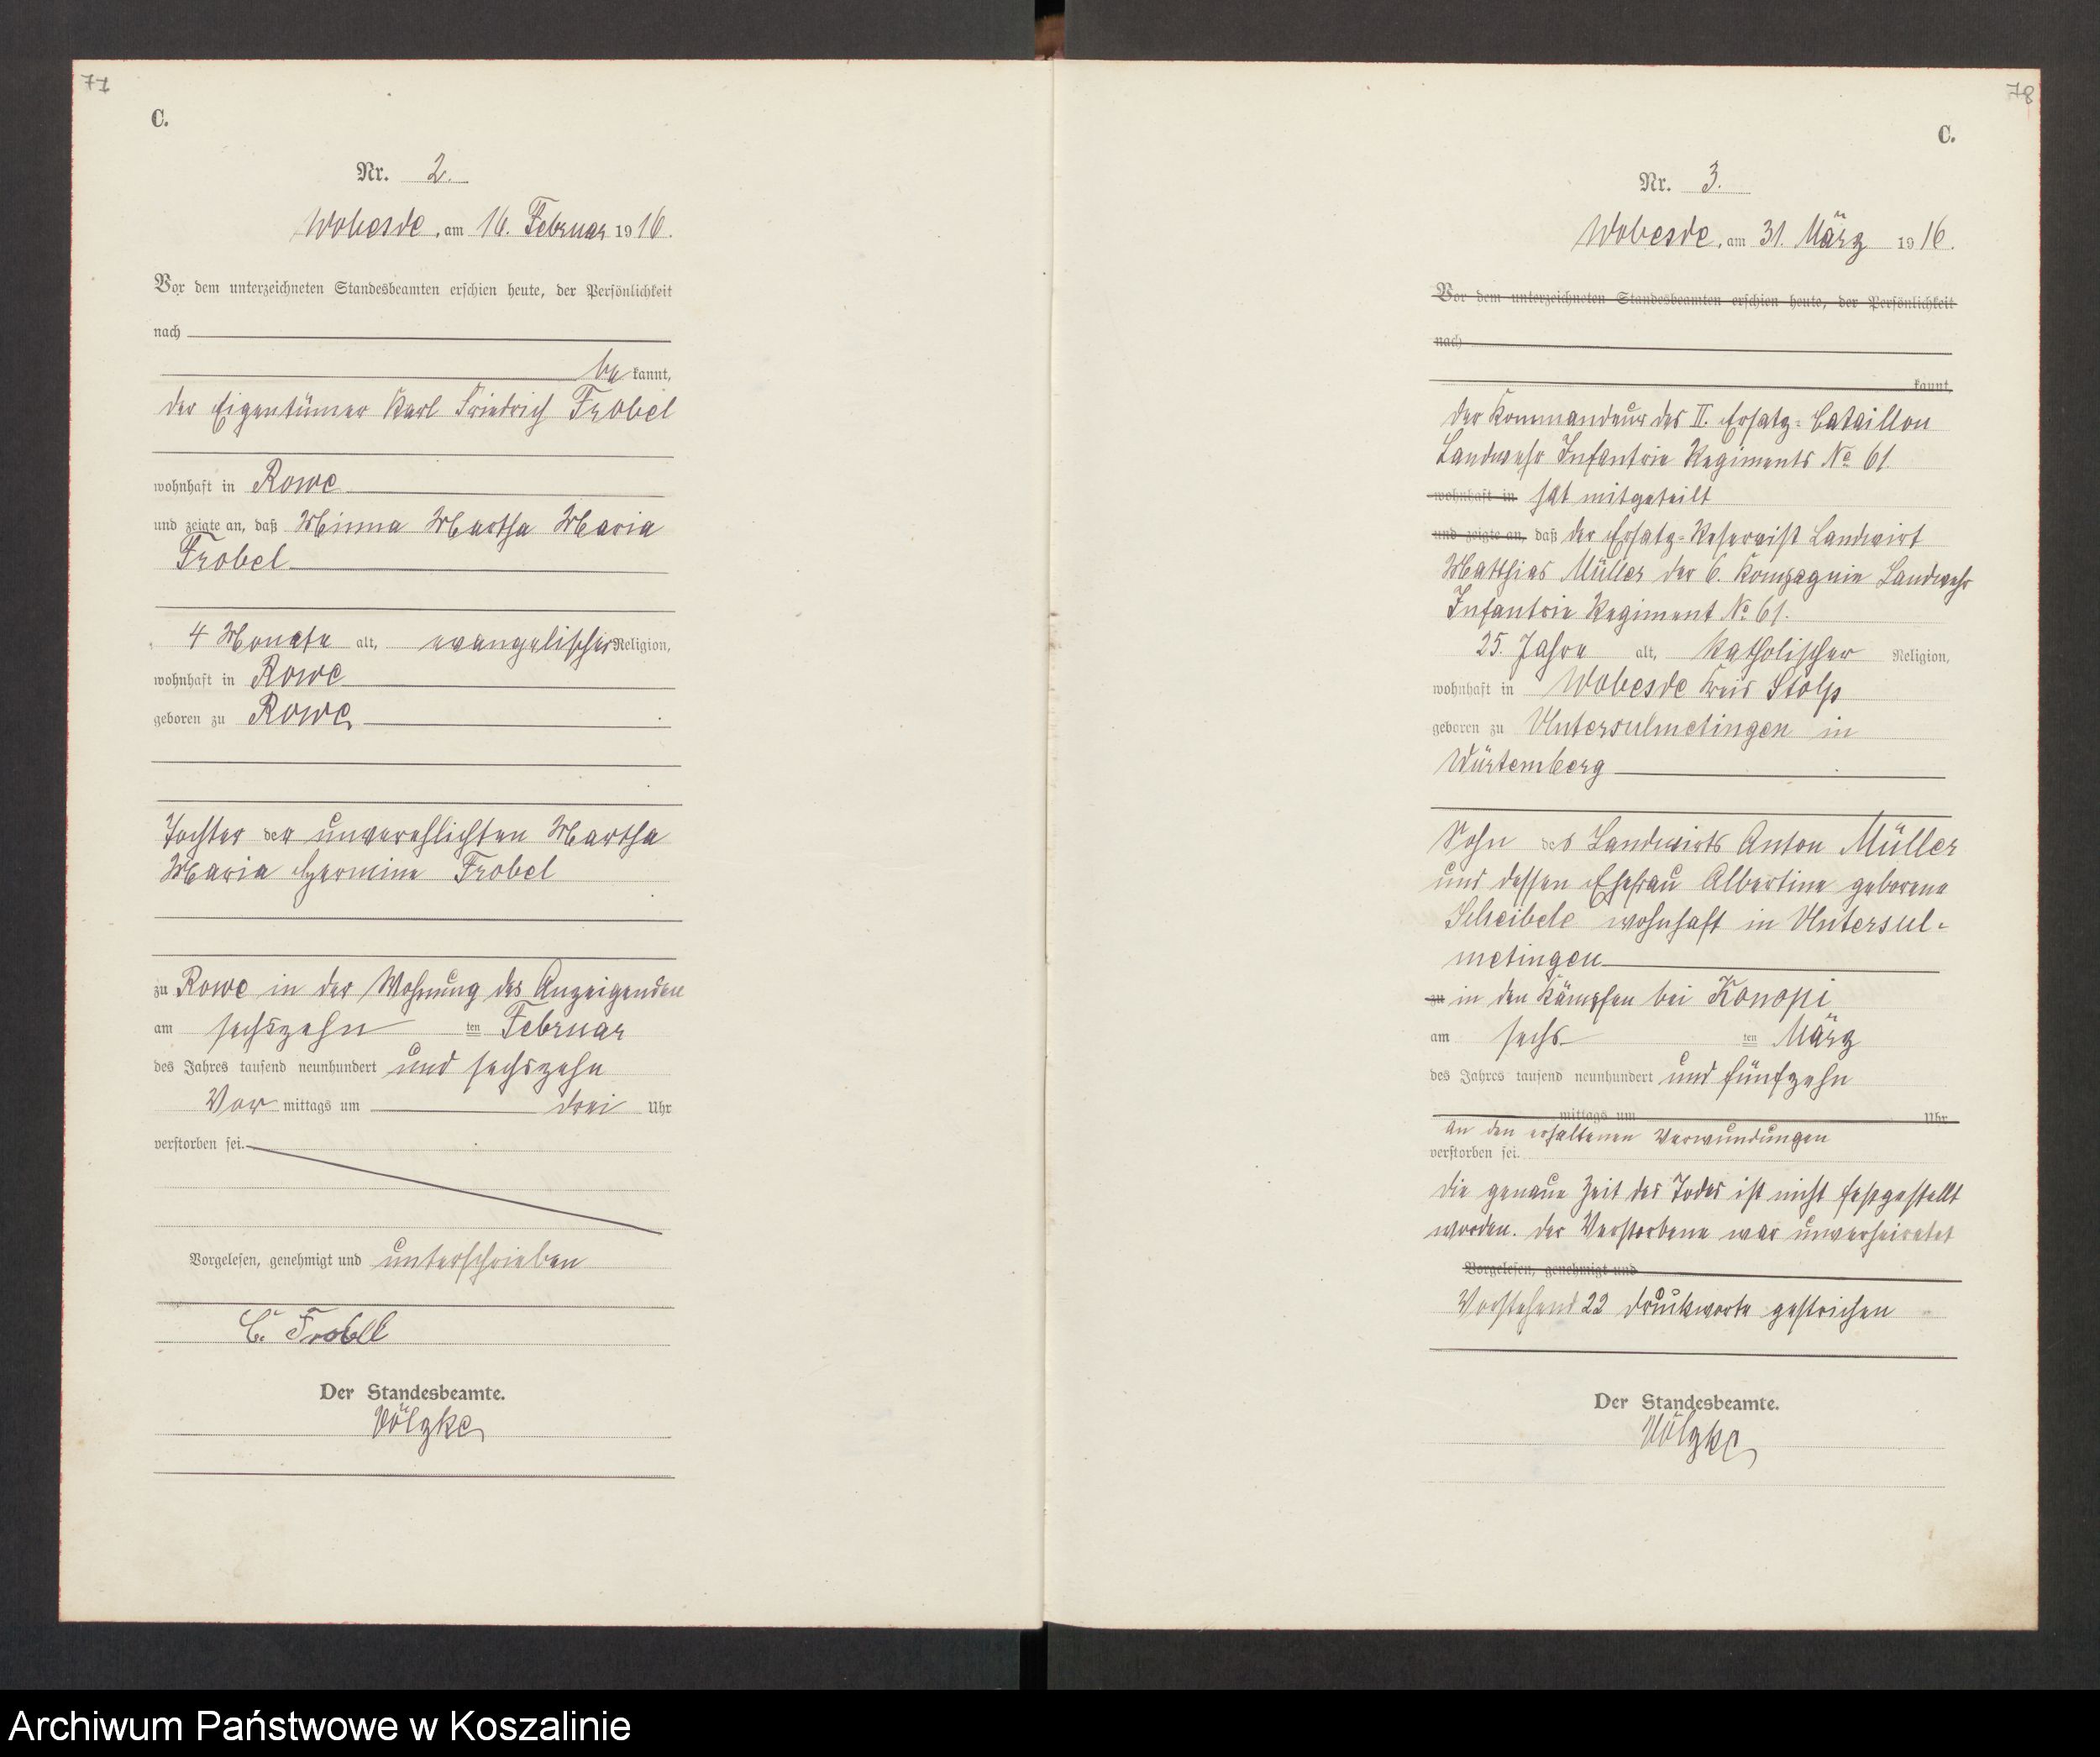 71
C.
Nr. 2.
Wobesde, am 16. Februar 1916.
Vor dem unterzeichneten Standesbeamten erschien heute, der Persönlichkeit
nach
be kannt,
der Eigentümer Karl Friedrich Frobel
wohnhaft in Rowe
und zeigte an, daß Minna Martha Maria
Frobel
4 Monate alt, evangelischer Religion,
wohnhaft in Rowe
geboren zu Rowe
Tochter der unverehlichten Martha
Maria Hermine Frobel
zu Rowe in der Wohnung des Anzeigenden
am sechszehn ten Februar
des Jahres tausend neunhundert und sechszehn
Vor mittags um drei Uhr
verstorben sei.
Vorgelesen, genehmigt und unterschrieben
C. Frobell
Der Standesbeamte.
Völzke
78
C.
Nr. 3.
Wobesde, am 31. März 1916.
Vor dem unterzeichneten Standesbeamten erschien heute, der Persönlichkeit
nach
kannt,
der Kommandeur des II. Ersatz-Bataillon
Landwehr Infantrie Regiments No 61
wohnhaft in hat mitgeteilt
und zeigte an, daß der Ersatz-Reservist Landwirt
Matthias Müller der 6. Kompagnie Landwehr
Infantrie Regiment No 61.
25. Jahre alt, katholischer Religion,
wohnhaft in Wobesde Kreis Stolp
geboren zu Untersulmetingen in
Würtemberg
Sohn des Landwirts Anton Müller
und dessen Ehefrau Albertine geborene
Scheibele wohnhaft in Untersul-
metingen
zu in den Kämpfen bei Konopi
am sechs ten März
des Jahres tausend neunhundert und fünfzehn
mittags um Uhr
an den erhaltenen Verwundungen
verstorben sei.
die genaue Zeit des Todes ist nicht festgestellt
worden. der Verstorbene war unverheiratet
Vorgelesen, genehmigt und
Vorstehend 22 Druckworte gestrichen
Der Standesbeamte.
Völzke
Archiwum Państwowe w Koszalinie